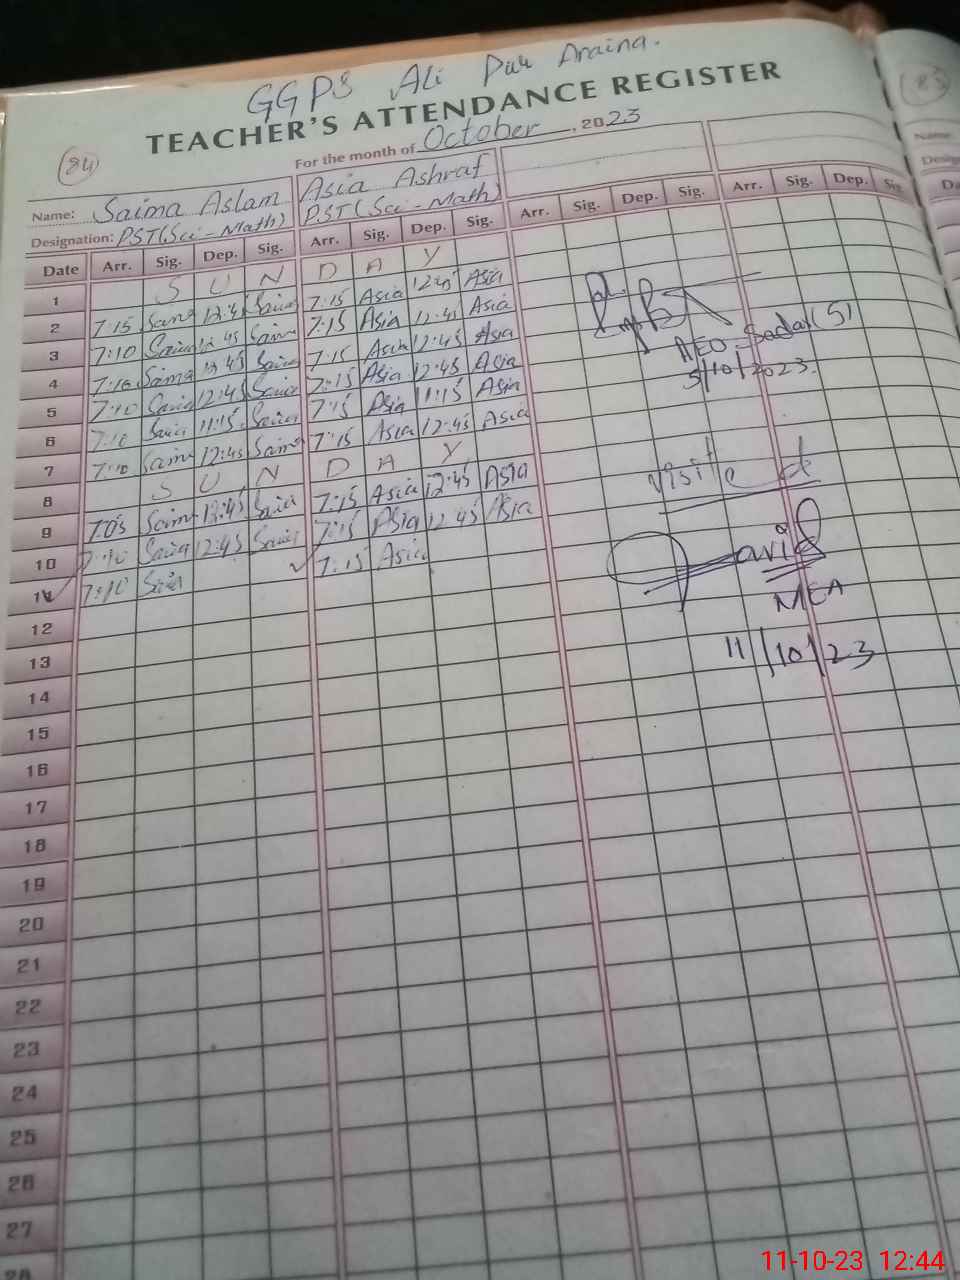 GGPS Ali Pur Araina.
TEACHER'S ATTENDANCE REGISTER
84
For the month of October, 2023
Name: Saima Aslam Asia Ashraf
Designation: PST(Sci-Math) PST(Sci-Math)
Date Arr. Sig. Dep. Sig. Arr. Sig. Dep. Sig. Arr. Sig. Dep. Sig. Arr. Sig. Dep. Sig.
1 S U N D A Y
2 7:15 Saima 12:45 Saima 7:15 Asia 12:45 Asia
3 7:10 Saima 12:45 Saima 7:15 Asia 12:45 Asia
4 7:10 Saima 12:45 Saima 7:15 Asia 12:45 Asia
5 7:10 Saima 12:45 Saima 7:15 Asia 12:45 Asia
6 7:10 Saima 11:15 Saima 7:15 Asia 11:15 Asia
7 7:10 Saima 12:45 Saima 7:15 Asia 12:45 Asia
8 S U N D A Y
9 7:05 Saima 12:45 Saima 7:15 Asia 12:45 Asia
10 7:10 Saima 12:45 Saima 7:15 Asia 12:45 Asia
11 7:10 Saima 7:15 Asia
12
13
14
15
16
17
18
19
20
21
22
23
24
25
26
27
28
AEO Sadar(S)
5/10/2023.
visited
Javid
MEA
11/10/23
85
Name
11-10-23 12:44